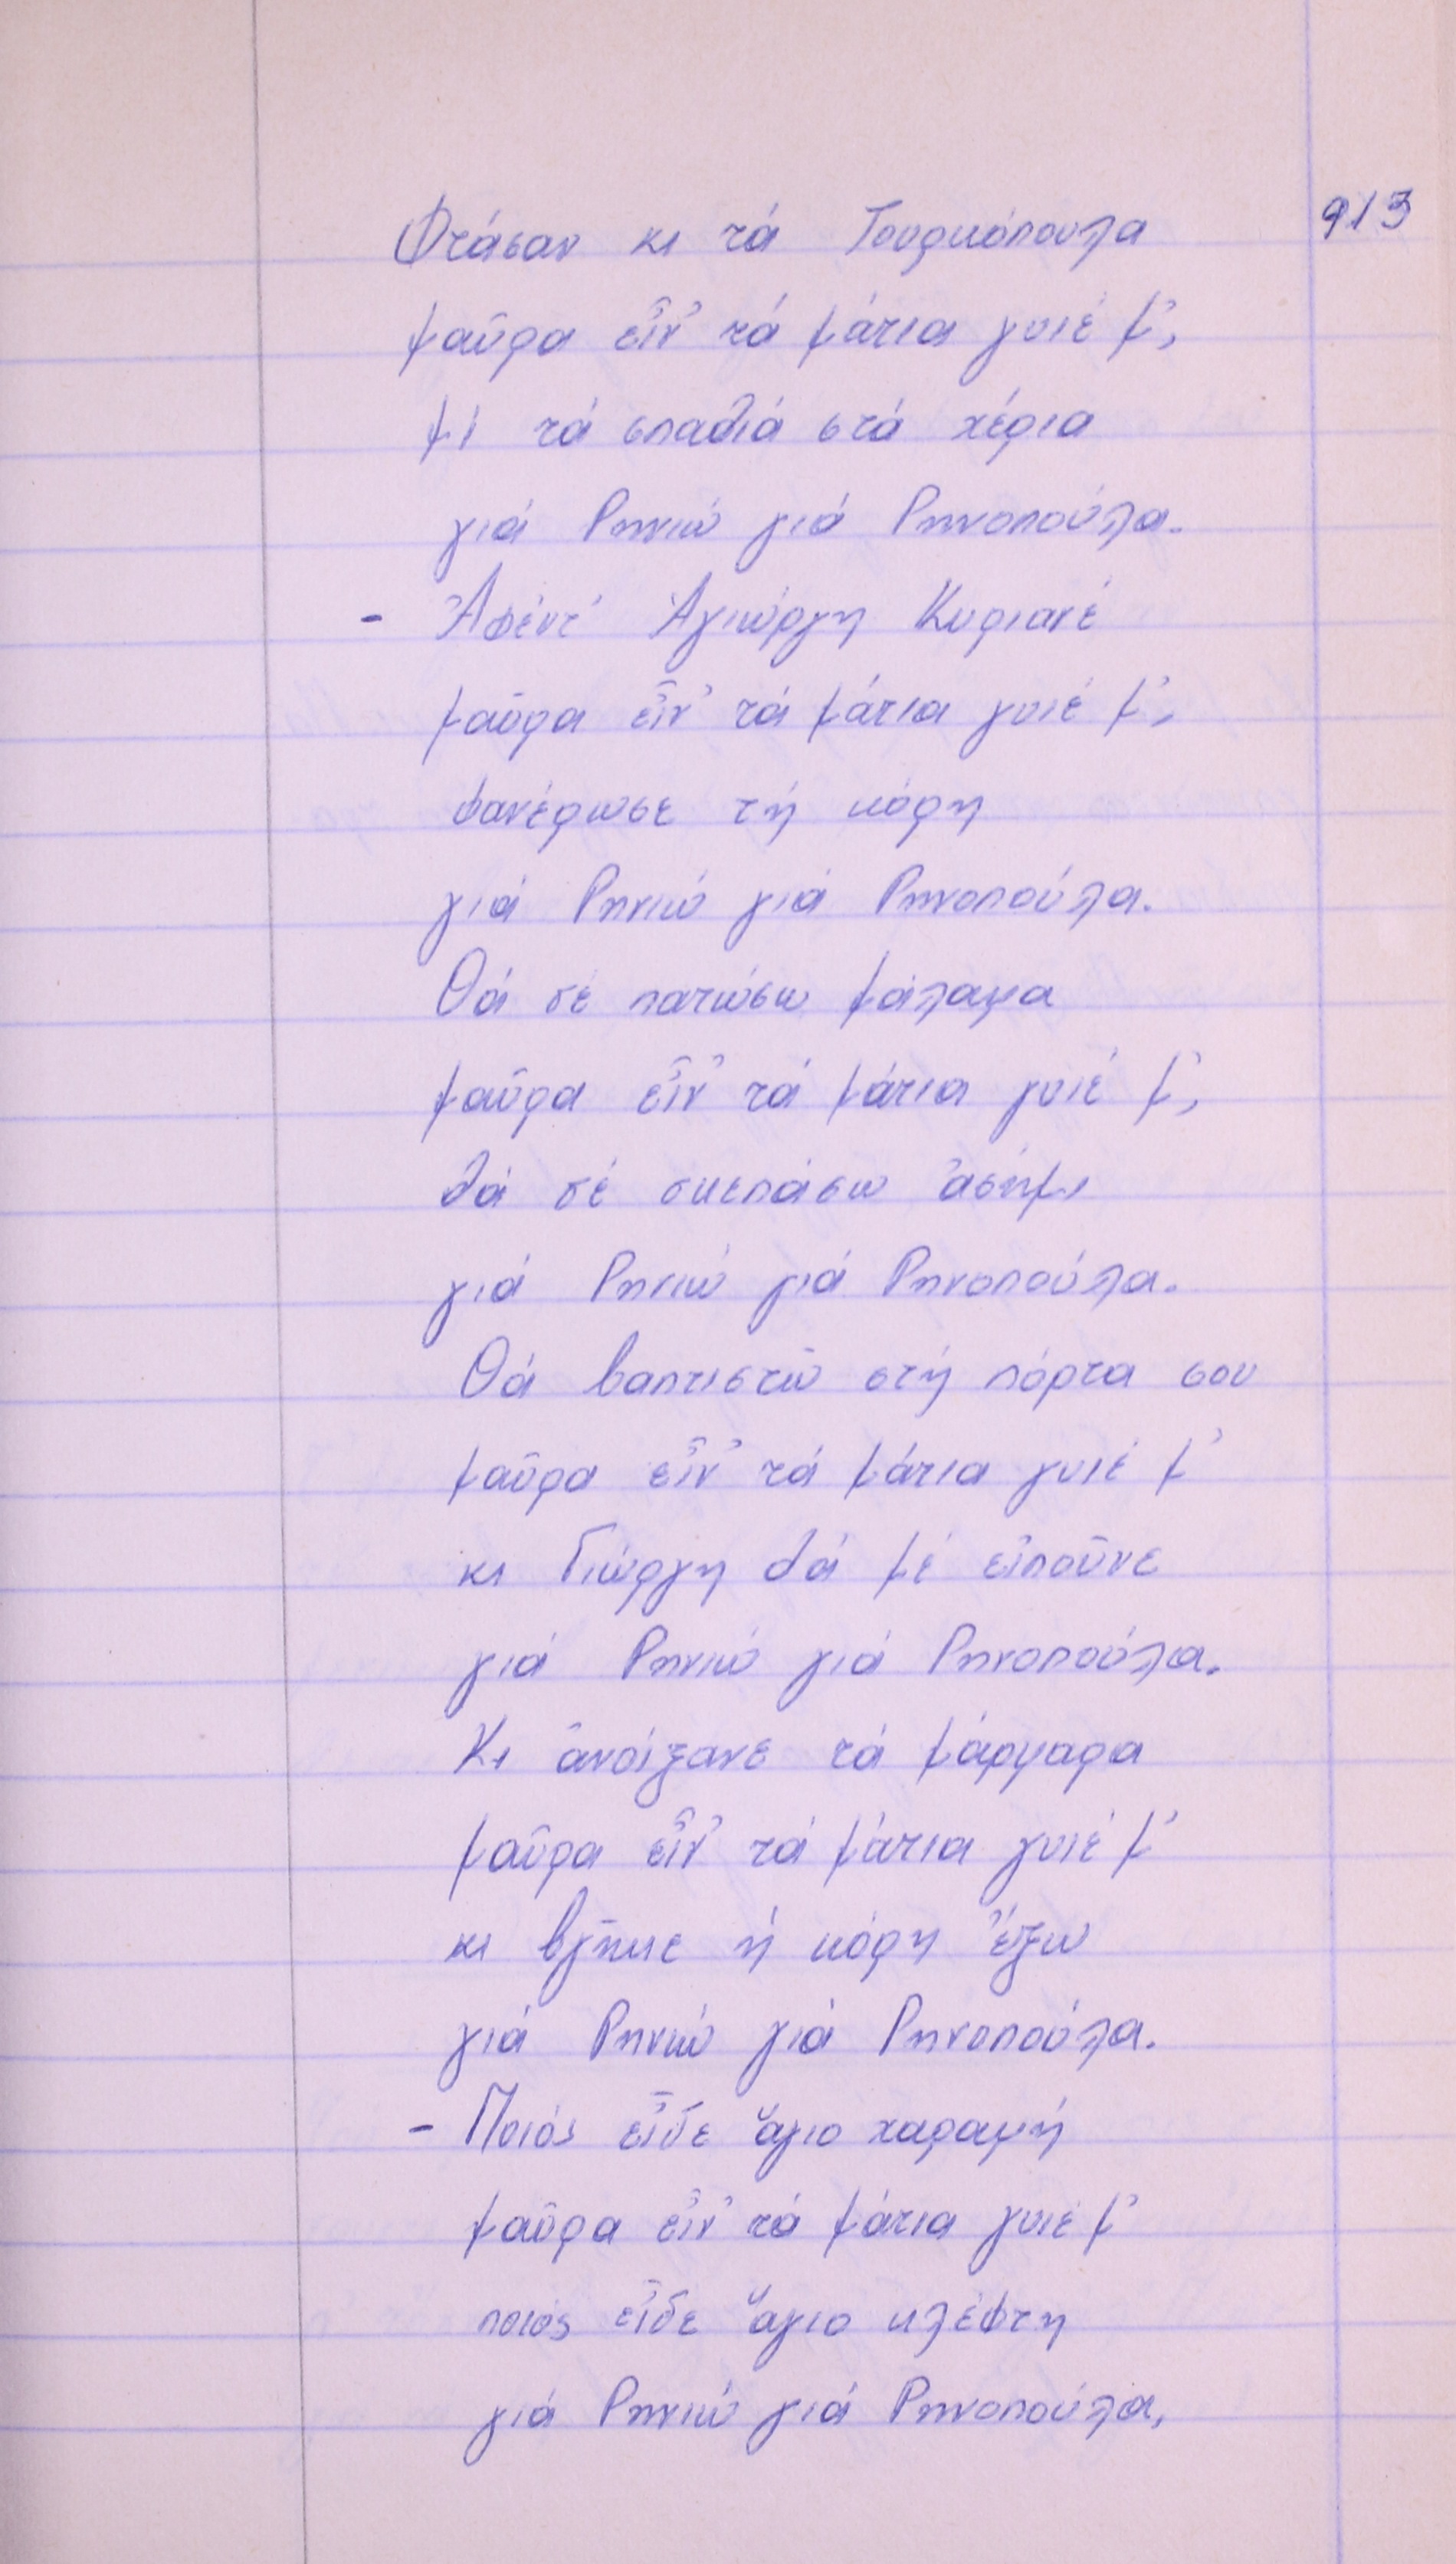 913
Φτάσαν κι τά Τουρκόπουλα
μαῦρα εἶν᾿ τά μάτια γυιέ μ᾿,
μί τά σπαθιά στά χέρια
γιά Ρηνιώ γιά Ρηνοπούλα.
- Ἀφέντ᾿ Ἁγιώργη Κυριανέ
μαῦρα εἶν᾿ τά μάτια γυιέ μ᾿,
φανέρωσε τή κόρη
γιά Ρηνιώ γιά Ρηνοπούλα.
Θά σέ πατώσω μάλαμα
μαῦρα εἶν᾿ τά μάτια γυιέ μ᾿,
θά σέ σκεπάσω ἀσήμι
γιά Ρηνιώ γιά Ρηνοπούλα.
Θά βαπτιστῶ στή πόρτα σου
μαῦρα εἶν᾿ τά μάτια γυιέ μ᾿
κι Γιώργη θά μέ εἰποῦνε
γιά Ρηνιώ γιά Ρηνοπούλα.
Κι ἀνοίξανε τά μάρμαρα
μαῦρα εἶν᾿ τά μάτια γυιέ μ᾿
κι βγῆκε ἡ κόρη ἔξω
γιά Ρηνιώ γιά Ρηνοπούλα.
- Ποιός εἶδε ἅγιο χαραμή
μαῦρα εἶν᾿ τά μάτια γυιέ μ᾿
ποιός εἶδε ἅγιο κλέφτη
γιά Ρηνιώ γιά Ρηνοπούλα,